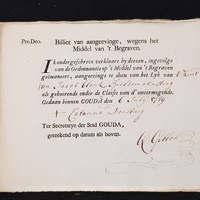 Pro Deo.
Billet van aangeevinge, wegens het
Middel van 't Begraven.
Ik ondergeschreve verklaare by deezen, ingevolge
van de Ordonnantie op 't Middel van 't Begraven
geëmaneert, aangevinge te doen van het Lyk van 't kind
van Jacob
als gehoorende onder de Classis van d'onvermogende.
Gedaan binnen GOUDA den 6 July
Catarina
Ter Secretarye der Stad GOUDA,
geteekend op datum als boven.